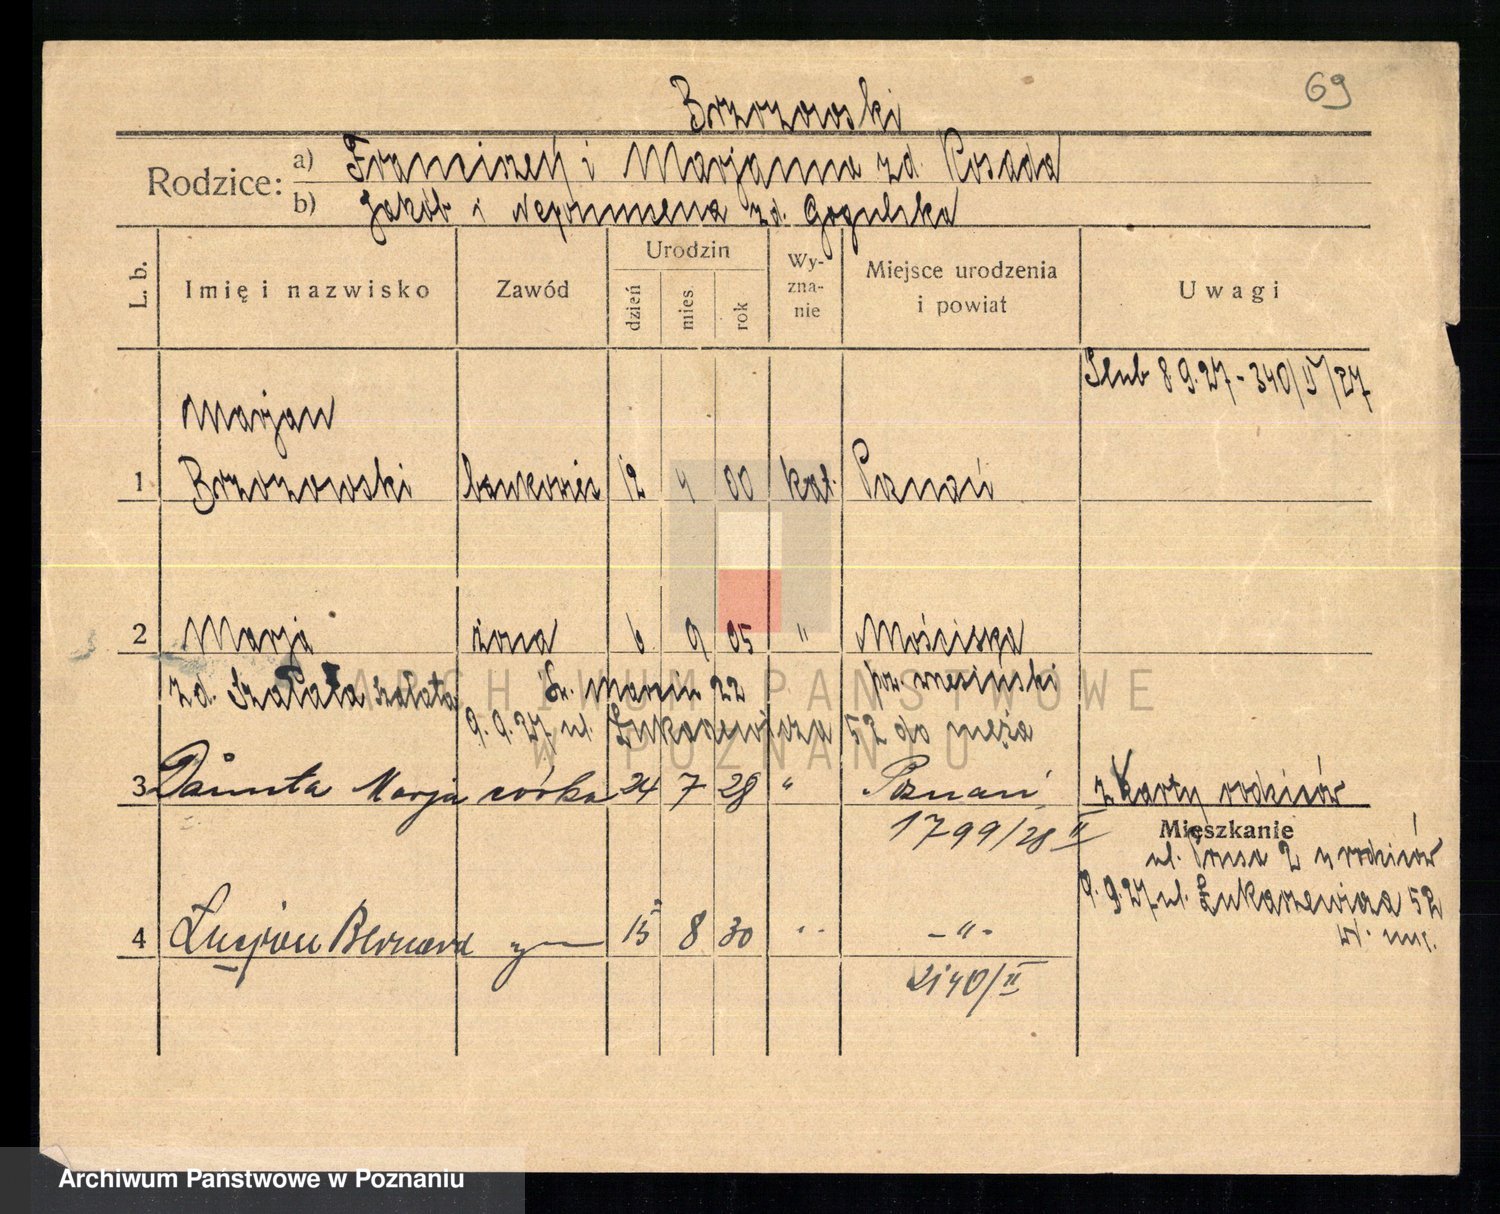 69
Brzozowski
Rodzice: a) Franciszek i Marjanna zd. Posada
b) Jakób i Nepomucena zd. Gogulska
L. b. Imię i nazwisko Zawód Urodzin dzień mies. rok Wy-zna-nie Miejsce urodzenia i powiat Uwagi
Ślub 8.9.27 - 340/II/27
Marjan
1 Brzozowski bankowiec 12 4 00 kat. Poznań
2 Marja żona 6 9 05 " Mościska
zd. Szałata Szałata Św. Marcin 22
9.9.27 ul. Łukaszewicza 52 do męża
3 Danuta Marja córka 24 7 28 " Poznań z Karty rodziców
1799/28 II
Mieszkanie
ul. 2 u rodziców
9.9.27 ul. Łukaszewicza 52
4 Lucjan Bernard syn 15 8 30 " - " -
2140/II
ARCHIWUM PAŃSTWOWE
W POZNANIU
Archiwum Państwowe w Poznaniu